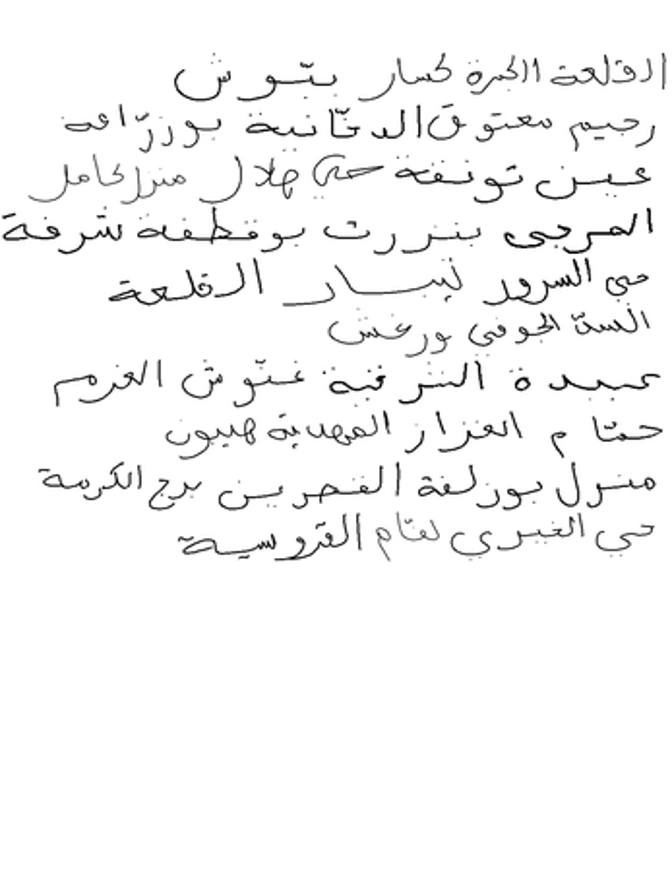 القلعة الكبرة كسار بتوش
رجيم معتوق الدخانية بوزرافة
عين تونفة حي هلال منزل كامل
المرجى بنزرت بوقطفة شرفة
حي السرور نيسار القلعة
السد الجوفي ورغش
عبيدة الشرفية غنوش العزم
حمام الغزاز المهدية هيبون
منزل بوزلفة القصرين برج الكرمة
حي الخبري لقام القروسية